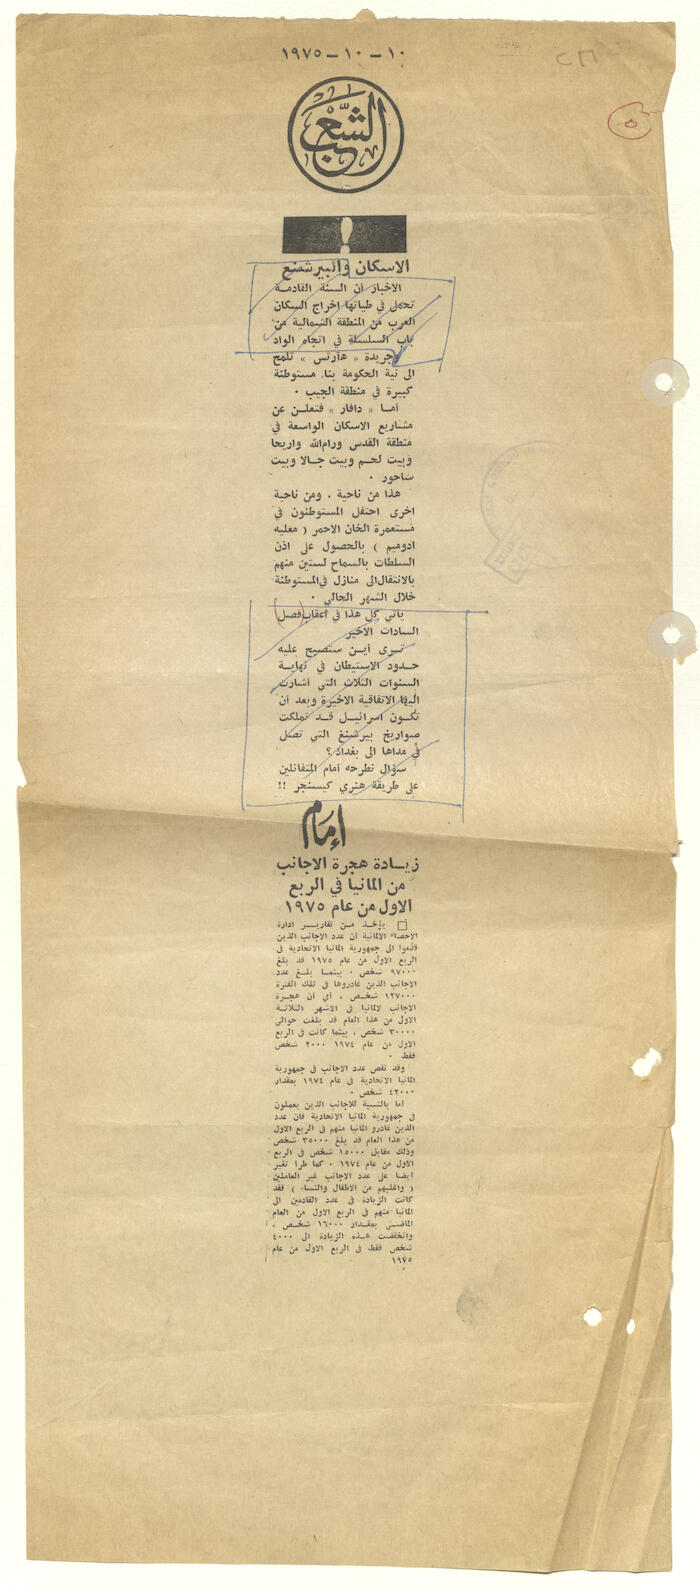 ١٠-١٠-١٩٧٥
الشعب
!
الاسكان والبيرشنغ
الاخبار أن السنة القادمة
تحمل في طياتها اخراج السكان
العرب من المنطقة الشمالية من
باب السلسلة في اتجاه الواد
وجريدة « هآرتس » تلمح
الى نية الحكومة بناء مستوطنة
كبيرة في منطقة الجيب ٠
أما « دافار » فتعلن عن
مشاريع الاسكان الواسعة في
منطقة القدس ورام الله واريحا
وبيت لحم وبيت جالا وبيت
ساحور ٠
هذا من ناحية ، ومن ناحية
اخرى احتفل المستوطنون في
مستعمرة الخان الاحمر ( معليه
ادوميم ) بالحصول على اذن
السلطات بالسماح لستين منهم
بالانتقال الى منازل في المستوطنة
خلال الشهر الحالي ٠
يأتي كل هذا في أعقاب (فصل)
السادات الاخير
ترى أين ستصبح عليه
حدود الاستيطان في نهاية
السنوات الثلاث التي أشارت
اليها الاتفاقية الاخيرة وبعد أن
تكون اسرائيل قد تملكت
صواريخ بيرشينغ التي تصل
في مداها الى بغداد ؟
سؤال نطرحه أمام المتفائلين
على طريقة هنري كيسنجر !!
إمام
زيادة هجرة الاجانب
من المانيا في الربع
الاول من عام ١٩٧٥
يؤخذ من تقارير ادارة
الاحصاء الالمانية أن عدد الاجانب الذين
قدموا الى جمهورية المانيا الاتحادية في
الربع الاول من عام ١٩٧٥ قد بلغ
٩٧٠٠٠ شخص ، بينما بلغ عدد
الاجانب الذين غادروها في تلك الفترة
١٢٧٠٠٠ شخص ، أي ان هجرة
الاجانب لالمانيا في الاشهر الثلاثة
الاول من هذا العام قد بلغت حوالي
٣٠٠٠٠ شخص ، بينما كانت في الربع
الاول من عام ١٩٧٤ ٢٠٠٠ شخص
فقط ٠
وقد نقص عدد الاجانب في جمهورية
المانيا الاتحادية في عام ١٩٧٤ بمقدار
٤٢٠٠٠ شخص ٠
أما بالنسبة للاجانب الذين يعملون
في جمهورية المانيا الاتحادية فان عدد
الذين غادرو المانيا منهم في الربع الاول
من هذا العام قد بلغ ٣٥٠٠٠ شخص
وذلك مقابل ١٥٠٠٠ شخص في الربع
الاول من عام ١٩٧٤ ٠ كما طرأ تغير
أيضا على عدد الاجانب غير العاملين
( واغلبهم من الاطفال والنساء ) فقد
كانت الزيادة في عدد القادمين الى
المانيا منهم في الربع الاول من العام
الماضي بمقدار ١٦٠٠٠ شخص ،
وانخفضت هذه الزيادة الى ٤٠٠٠
شخص فقط في الربع الاول من عام
١٩٧٥